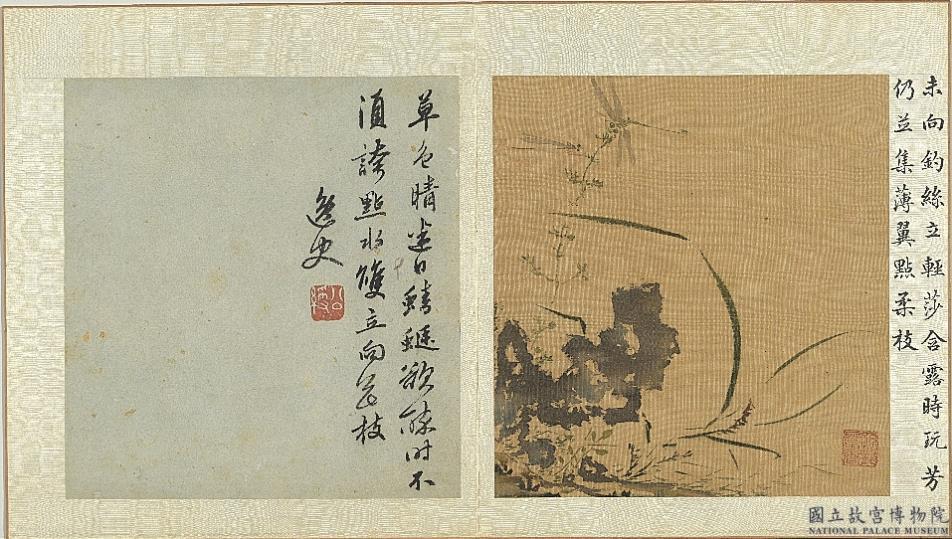 未向釣絲立輕莎含露時玩芳
仍並集薄翼點柔枝
草色晴迷日蜻蜓欲疎時不
須誇點水雙立向花枝
逸史
國立故宮博物院
NATIONAL PALACE MUSEUM